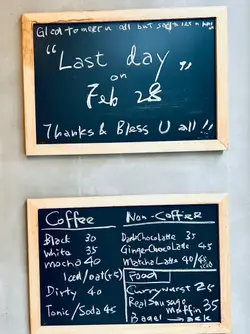 Glad to meet u all but
“Last day”
on
Feb 28
Thanks & Bless U all !!
Coffee
Black 30
White 35
mocha 40
Iced/oat(+5)
Dirty 40
Tonic/Soda 45
Non-Coffee
Dark Chocolatte 35
Ginger Chocolatte 45
Matcha Latte 40/45 iced
Food
Currywurst
Real Sausage
Muffin 35
Bagel